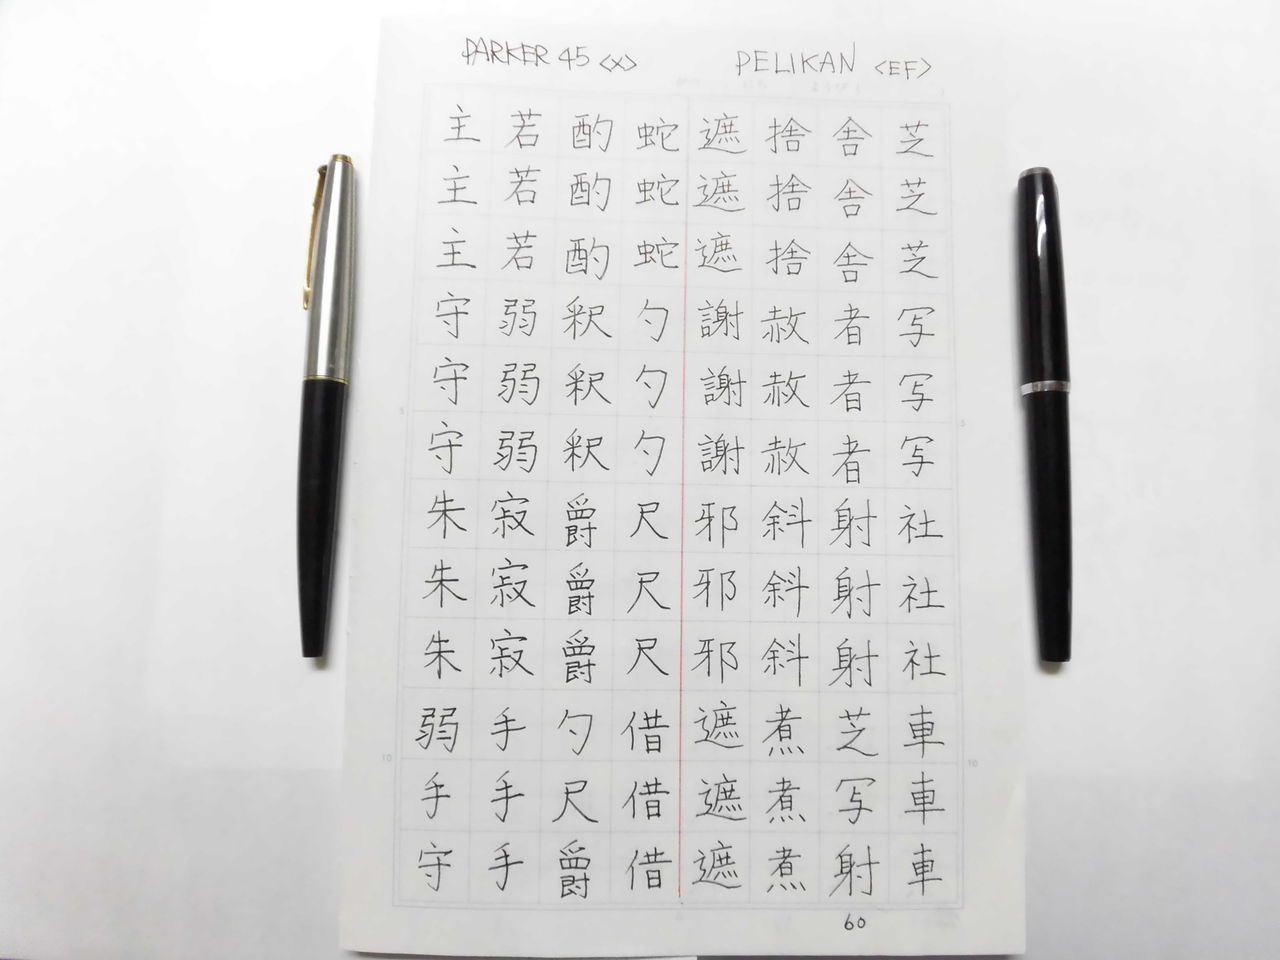 PARKER 45 <X>
PELIKAN <EF>
芝芝芝写写写社社社車車車
舎舎舎者者者射射射芝写射
捨捨捨赦赦赦斜斜斜煮煮煮
遮遮遮謝謝謝邪邪邪遮遮遮
蛇蛇蛇勺勺勺尺尺尺借借借
酌酌酌釈釈釈爵爵爵勺尺爵
若若若弱弱弱寂寂寂手手手
主主主守守守朱朱朱弱手守
5
5
10
10
60